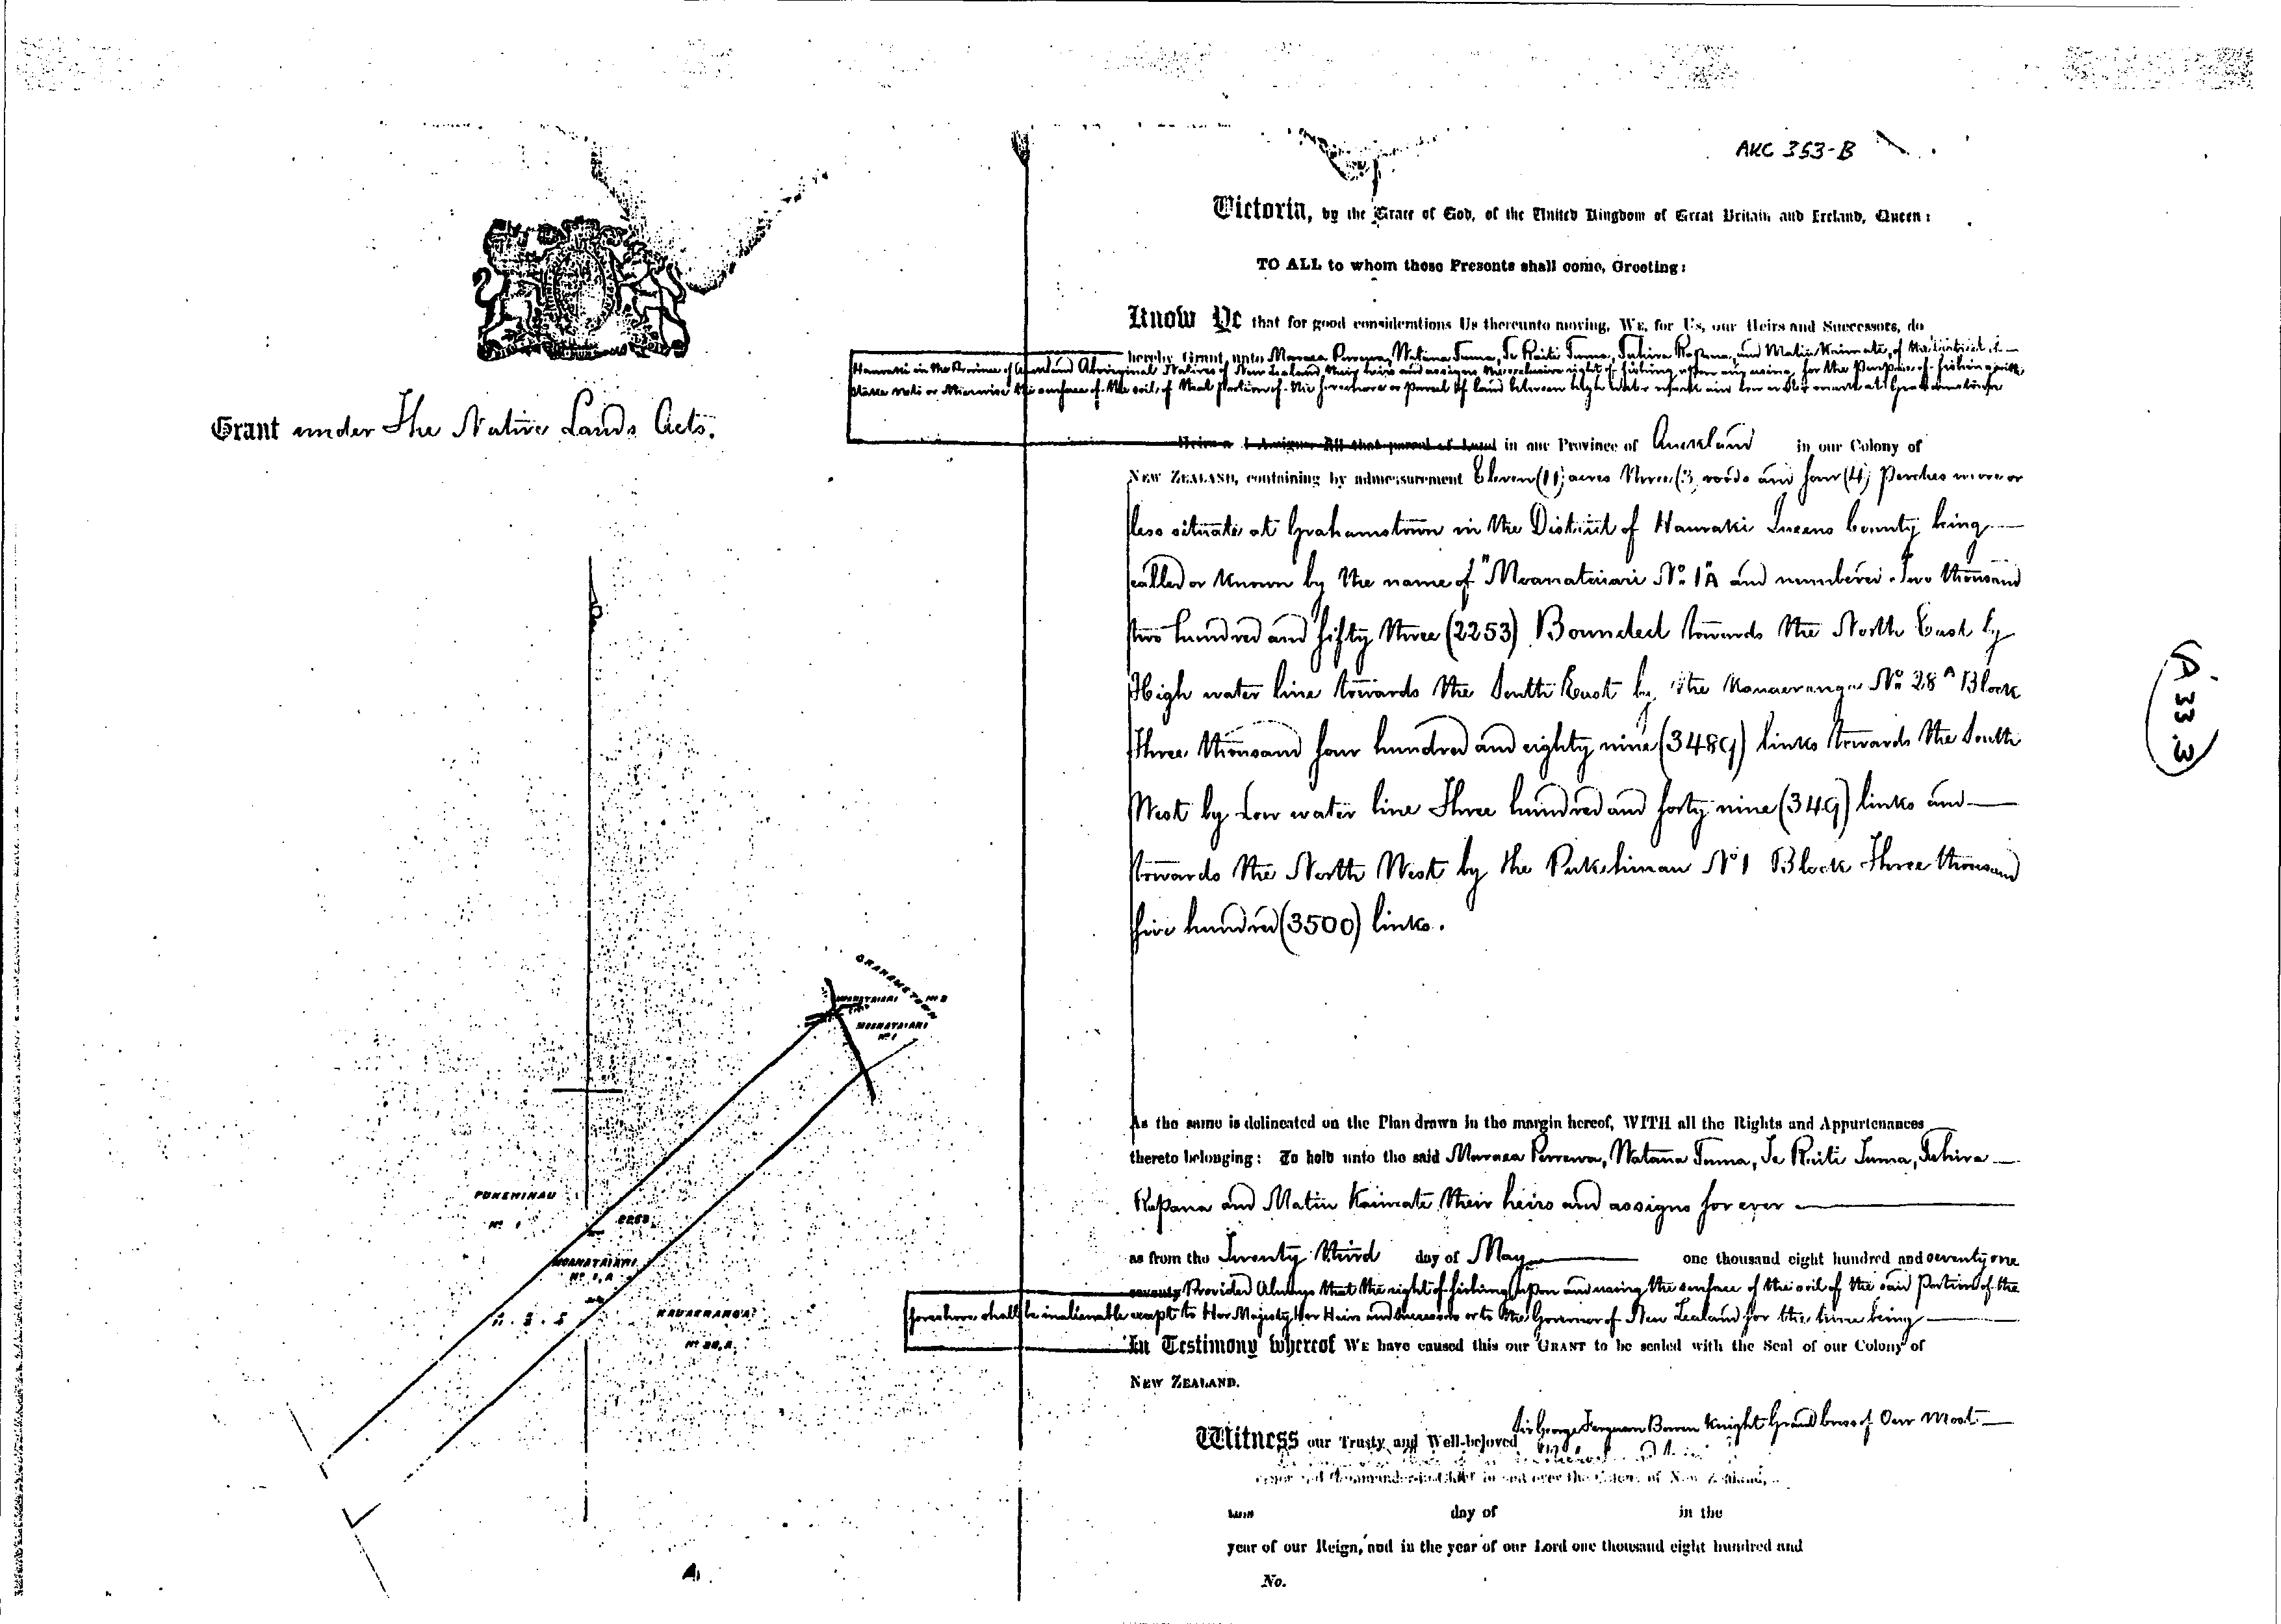 AKC 353-B
Grant under The Native Lands Acts.
Victoria, by the Grace of God, of the United Kingdom of Great Britain and Ireland, Queen:
TO ALL to whom these Presents shall come, Greeting:
Know Ye that for good considerations Us thereunto moving, WE, for Us, our Heirs and Successors, do
hereby Grant, unto Natana Tuma, Te Raiti Tuma, and of the District of
Hauraki in the Province of Auckland Aboriginal Natives of New Zealand, their heirs and assigns the exclusive right of fishing upon and using, for the Purpose of fishing with
stake nets or otherwise the surface of the soil, of that portion of the foreshore or parcel of land between high water mark and low water mark at Grahamstown
in our Province of Auckland in our Colony of
NEW ZEALAND, containing by admeasurement Eleven (11) acres Three (3) roods and four (4) Perches more or
less situate at Grahamstown in the District of Hauraki Queens County being
called or known by the name of "Moanataiari No 1A" and numbered Two thousand
two hundred and fifty three (2253) Bounded towards the North East by
High water line towards the South East by the Kauaeranga No 28A Block
Three thousand four hundred and eighty nine (3489) links towards the South
West by Low water line Three hundred and forty nine (349) links and
towards the North West by the Pukehinau No 1 Block Three thousand
five hundred (3500) links.
D 33 3
GRAHAMSTOWN
MOANATAIARI No 2
MOANATAIARI
No 1
PUKEHINAU
No 1
2253
MOANATAIARI
No 1, A
11 . 3 . 4
KAUAERANGA
No 28, A
As the same is delineated on the Plan drawn in the margin hereof, WITH all the Rights and Appurtenances
thereto belonging: To hold unto the said Natana Tuma, Te Raiti Tuma,
and their heirs and assigns for ever
as from the Twenty third day of May one thousand eight hundred and seventy one
seventy Provided Always that the right of fishing upon and using the surface of the soil of the said Portion of the
foreshore shall be inalienable except to Her Majesty Her Heirs and Successors or to the Governor of New Zealand for the time being
In Testimony whereof WE have caused this our GRANT to be sealed with the Seal of our Colony of
NEW ZEALAND.
Witness our Trusty and Well-beloved Sir George Ferguson Bowen Knight Grand Cross of Our Most
and Commander-in-Chief in and over the Colony of New Zealand,
this day of in the
year of our Reign, and in the year of our Lord one thousand eight hundred and
No.
A.